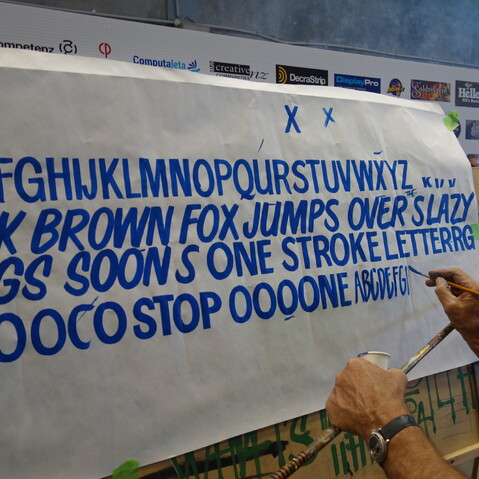 ompetenz
Computaleta
creative
nz
DecraStrip
DisplayPro
X X
FGHIJKLMNOPQURSTUVWXYZ
K BROWN FOX JUMPS OVER THE S LAZY
GS SOON S ONE STROKE LETTERRG
OOCO STOP OOOONE ABCDEFG